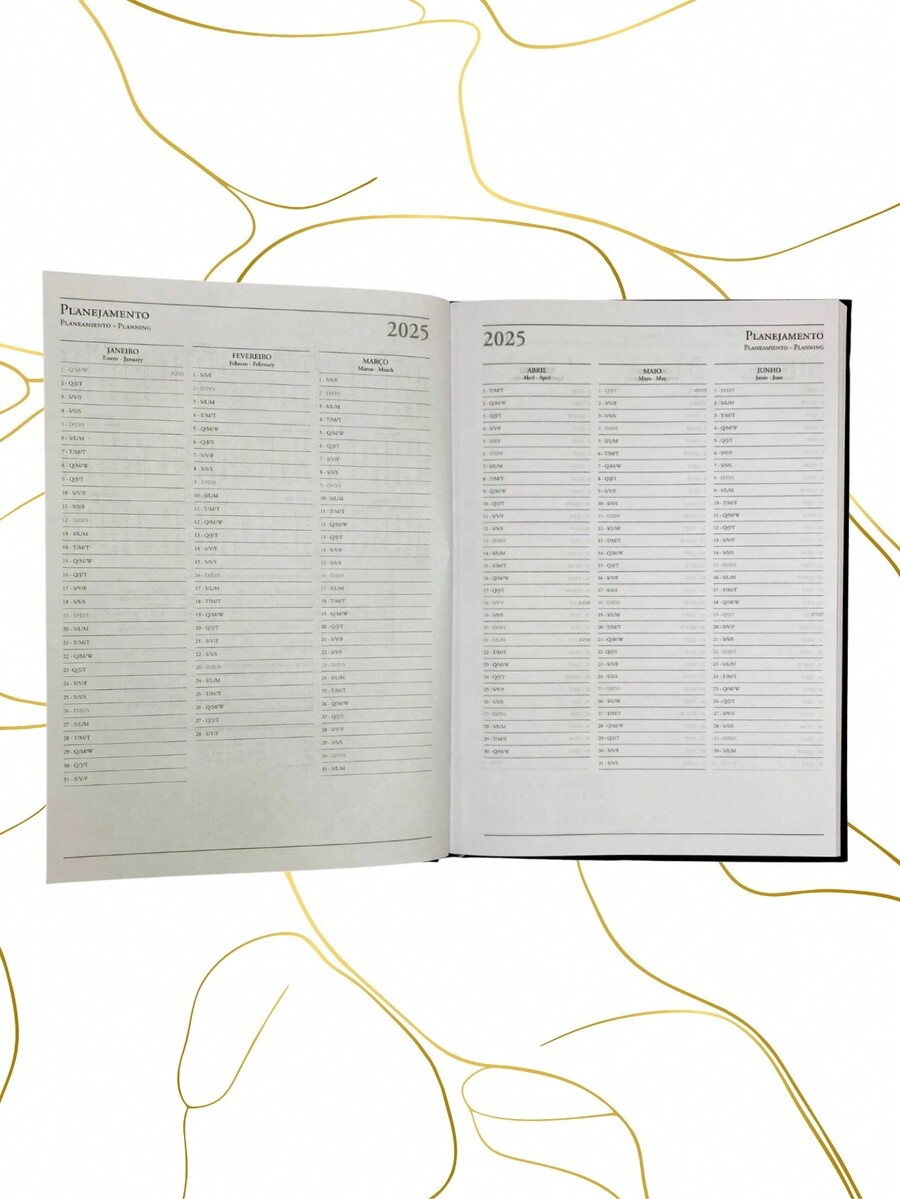 PLANEJAMENTO
PLANEAMIENTO - PLANNING
2025
JANEIRO
Enero - January
1 - Q/M/W
2 - Q/J/T
3 - S/V/F
4 - S/S/S
5 - D/D/S
6 - S/L/M
7 - T/M/T
8 - Q/M/W
9 - Q/J/T
10 - S/V/F
11 - S/S/S
12 - D/D/S
13 - S/L/M
14 - T/M/T
15 - Q/M/W
16 - Q/J/T
17 - S/V/F
18 - S/S/S
19 - D/D/S
20 - S/L/M
21 - T/M/T
22 - Q/M/W
23 - Q/J/T
24 - S/V/F
25 - S/S/S
26 - D/D/S
27 - S/L/M
28 - T/M/T
29 - Q/M/W
30 - Q/J/T
31 - S/V/F
FEVEREIRO
Febrero - February
1 - S/S/S
2 - D/D/S
3 - S/L/M
4 - T/M/T
5 - Q/M/W
6 - Q/J/T
7 - S/V/F
8 - S/S/S
9 - D/D/S
10 - S/L/M
11 - T/M/T
12 - Q/M/W
13 - Q/J/T
14 - S/V/F
15 - S/S/S
16 - D/D/S
17 - S/L/M
18 - T/M/T
19 - Q/M/W
20 - Q/J/T
21 - S/V/F
22 - S/S/S
23 - D/D/S
24 - S/L/M
25 - T/M/T
26 - Q/M/W
27 - Q/J/T
28 - S/V/F
MARÇO
Marzo - March
1 - S/S/S
2 - D/D/S
3 - S/L/M
4 - T/M/T
5 - Q/M/W
6 - Q/J/T
7 - S/V/F
8 - S/S/S
9 - D/D/S
10 - S/L/M
11 - T/M/T
12 - Q/M/W
13 - Q/J/T
14 - S/V/F
15 - S/S/S
16 - D/D/S
17 - S/L/M
18 - T/M/T
19 - Q/M/W
20 - Q/J/T
21 - S/V/F
22 - S/S/S
23 - D/D/S
24 - S/L/M
25 - T/M/T
26 - Q/M/W
27 - Q/J/T
28 - S/V/F
29 - S/S/S
30 - D/D/S
31 - S/L/M
2025
PLANEJAMENTO
PLANEAMIENTO - PLANNING
ABRIL
Abril - April
1 - T/M/T
2 - Q/M/W
3 - Q/J/T
4 - S/V/F
5 - S/S/S
6 - D/D/S
7 - S/L/M
8 - T/M/T
9 - Q/M/W
10 - Q/J/T
11 - S/V/F
12 - S/S/S
13 - D/D/S
14 - S/L/M
15 - T/M/T
16 - Q/M/W
17 - Q/J/T
18 - S/V/F
19 - S/S/S
20 - D/D/S
21 - S/L/M
22 - T/M/T
23 - Q/M/W
24 - Q/J/T
25 - S/V/F
26 - S/S/S
27 - D/D/S
28 - S/L/M
29 - T/M/T
30 - Q/M/W
MAIO
Mayo - May
1 - Q/J/T
2 - S/V/F
3 - S/S/S
4 - D/D/S
5 - S/L/M
6 - T/M/T
7 - Q/M/W
8 - Q/J/T
9 - S/V/F
10 - S/S/S
11 - D/D/S
12 - S/L/M
13 - T/M/T
14 - Q/M/W
15 - Q/J/T
16 - S/V/F
17 - S/S/S
18 - D/D/S
19 - S/L/M
20 - T/M/T
21 - Q/M/W
22 - Q/J/T
23 - S/V/F
24 - S/S/S
25 - D/D/S
26 - S/L/M
27 - T/M/T
28 - Q/M/W
29 - Q/J/T
30 - S/V/F
31 - S/S/S
JUNHO
Junio - June
1 - D/D/S
2 - S/L/M
3 - T/M/T
4 - Q/M/W
5 - Q/J/T
6 - S/V/F
7 - S/S/S
8 - D/D/S
9 - S/L/M
10 - T/M/T
11 - Q/M/W
12 - Q/J/T
13 - S/V/F
14 - S/S/S
15 - D/D/S
16 - S/L/M
17 - T/M/T
18 - Q/M/W
19 - Q/J/T
20 - S/V/F
21 - S/S/S
22 - D/D/S
23 - S/L/M
24 - T/M/T
25 - Q/M/W
26 - Q/J/T
27 - S/V/F
28 - S/S/S
29 - D/D/S
30 - S/L/M